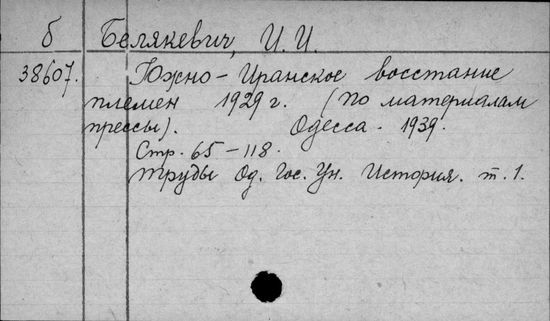 б Белякевич, И. И.
38607. Южно-Иранское восстание
племен 1929 г. (по материалам
прессы). Одесса. 1939.
Стр. 65-118.
Труды Од. Гос. Ун. История. т. 1.